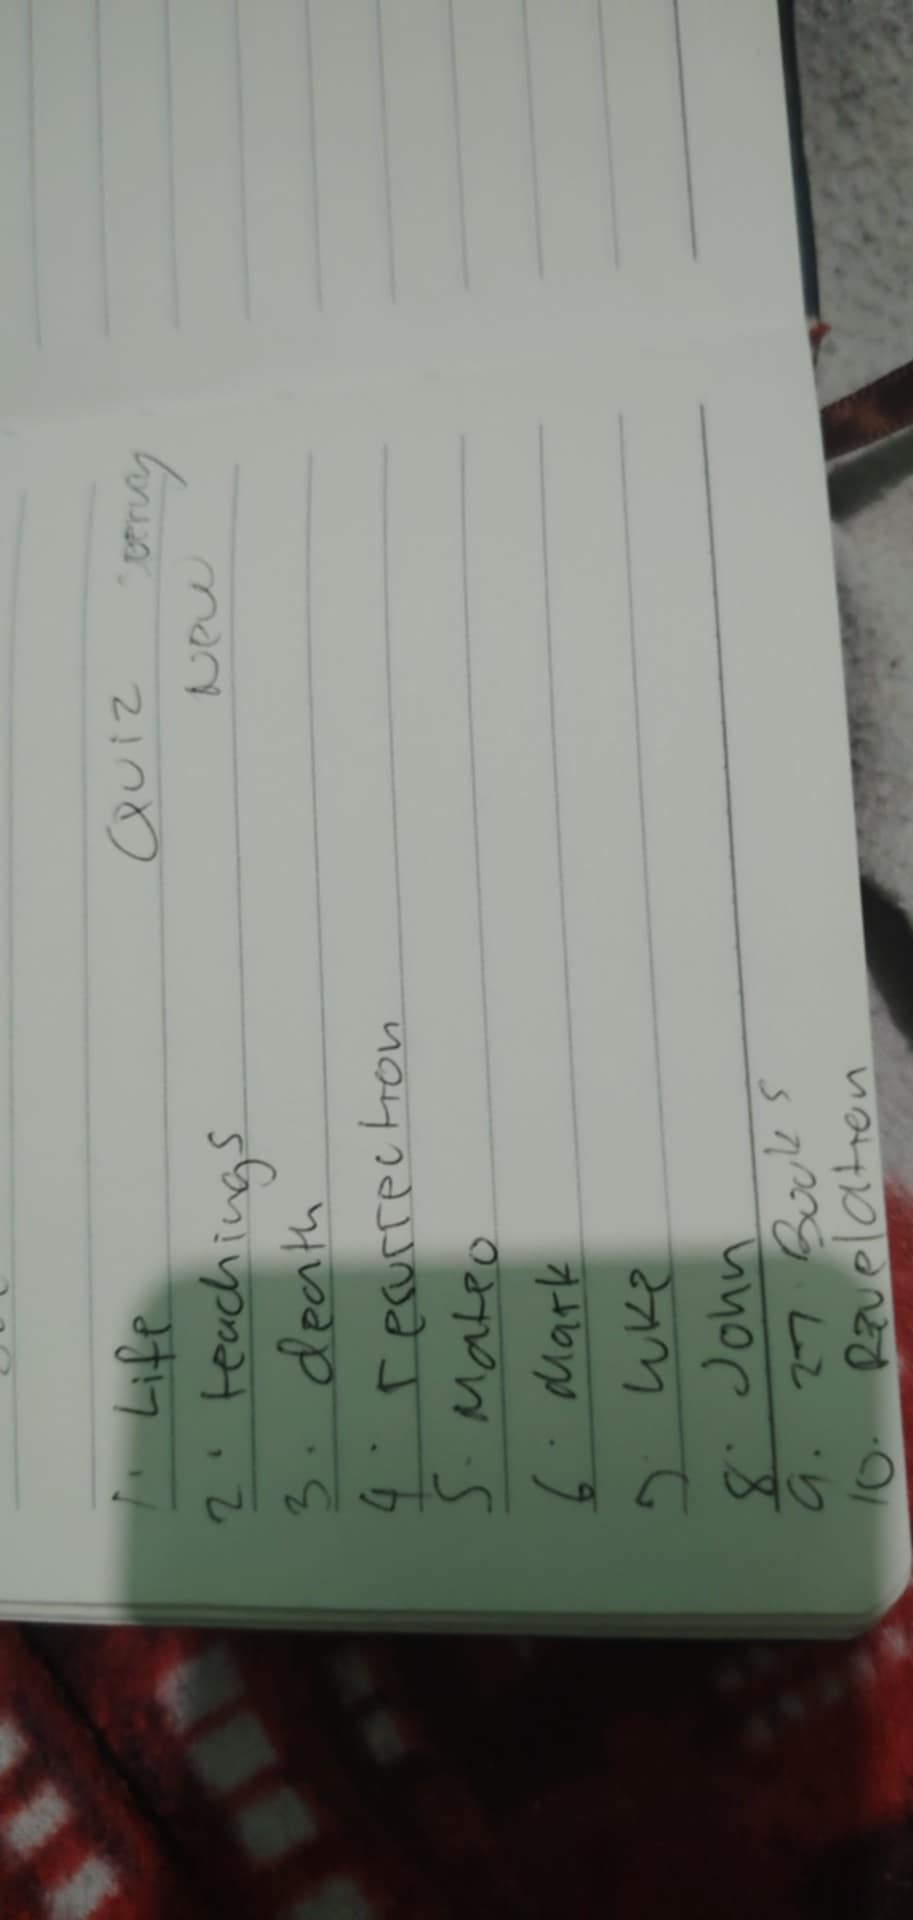 Quiz
New
1. Life
2. teachings
3. death
4. resurrection
5. Mateo
6. Mark
7. Luke
8. John
9. 27 Books
10. Revelation